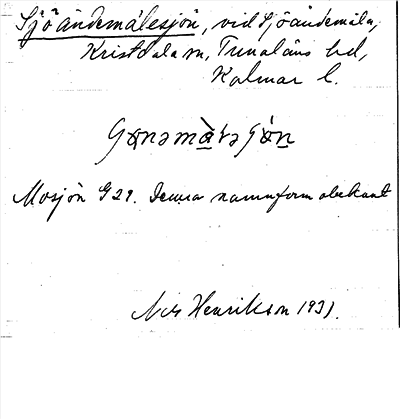 Sjöändemålesjön, vid Sjöändemåla,
Kristdala sn, Tunaläns hd,
Kalmar l.
Mosjön G 29. Denna namnform obekant
Nils Henrikson 1931.